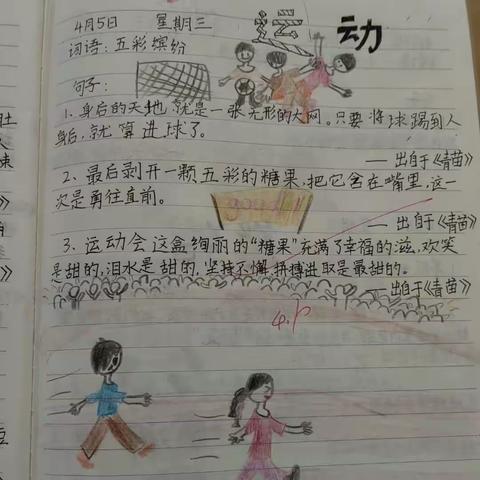 4月5日 星期三 运动
词语:五彩缤纷
句子:
1.身后的天地就是一张无形的大网。只要将球踢到人
身后,就算进球了。
— 出自于《青苗》
2、最后剥开一颗五彩的糖果,把它含在嘴里,这一
次是勇往直前。
good!!
— 出自于《青苗》
3、运动会这盒绚丽的“糖果”充满了幸福的滋,欢笑
是甜的,泪水是甜的,坚持不懈拼搏进取是最甜的。
— 出自于《青苗》